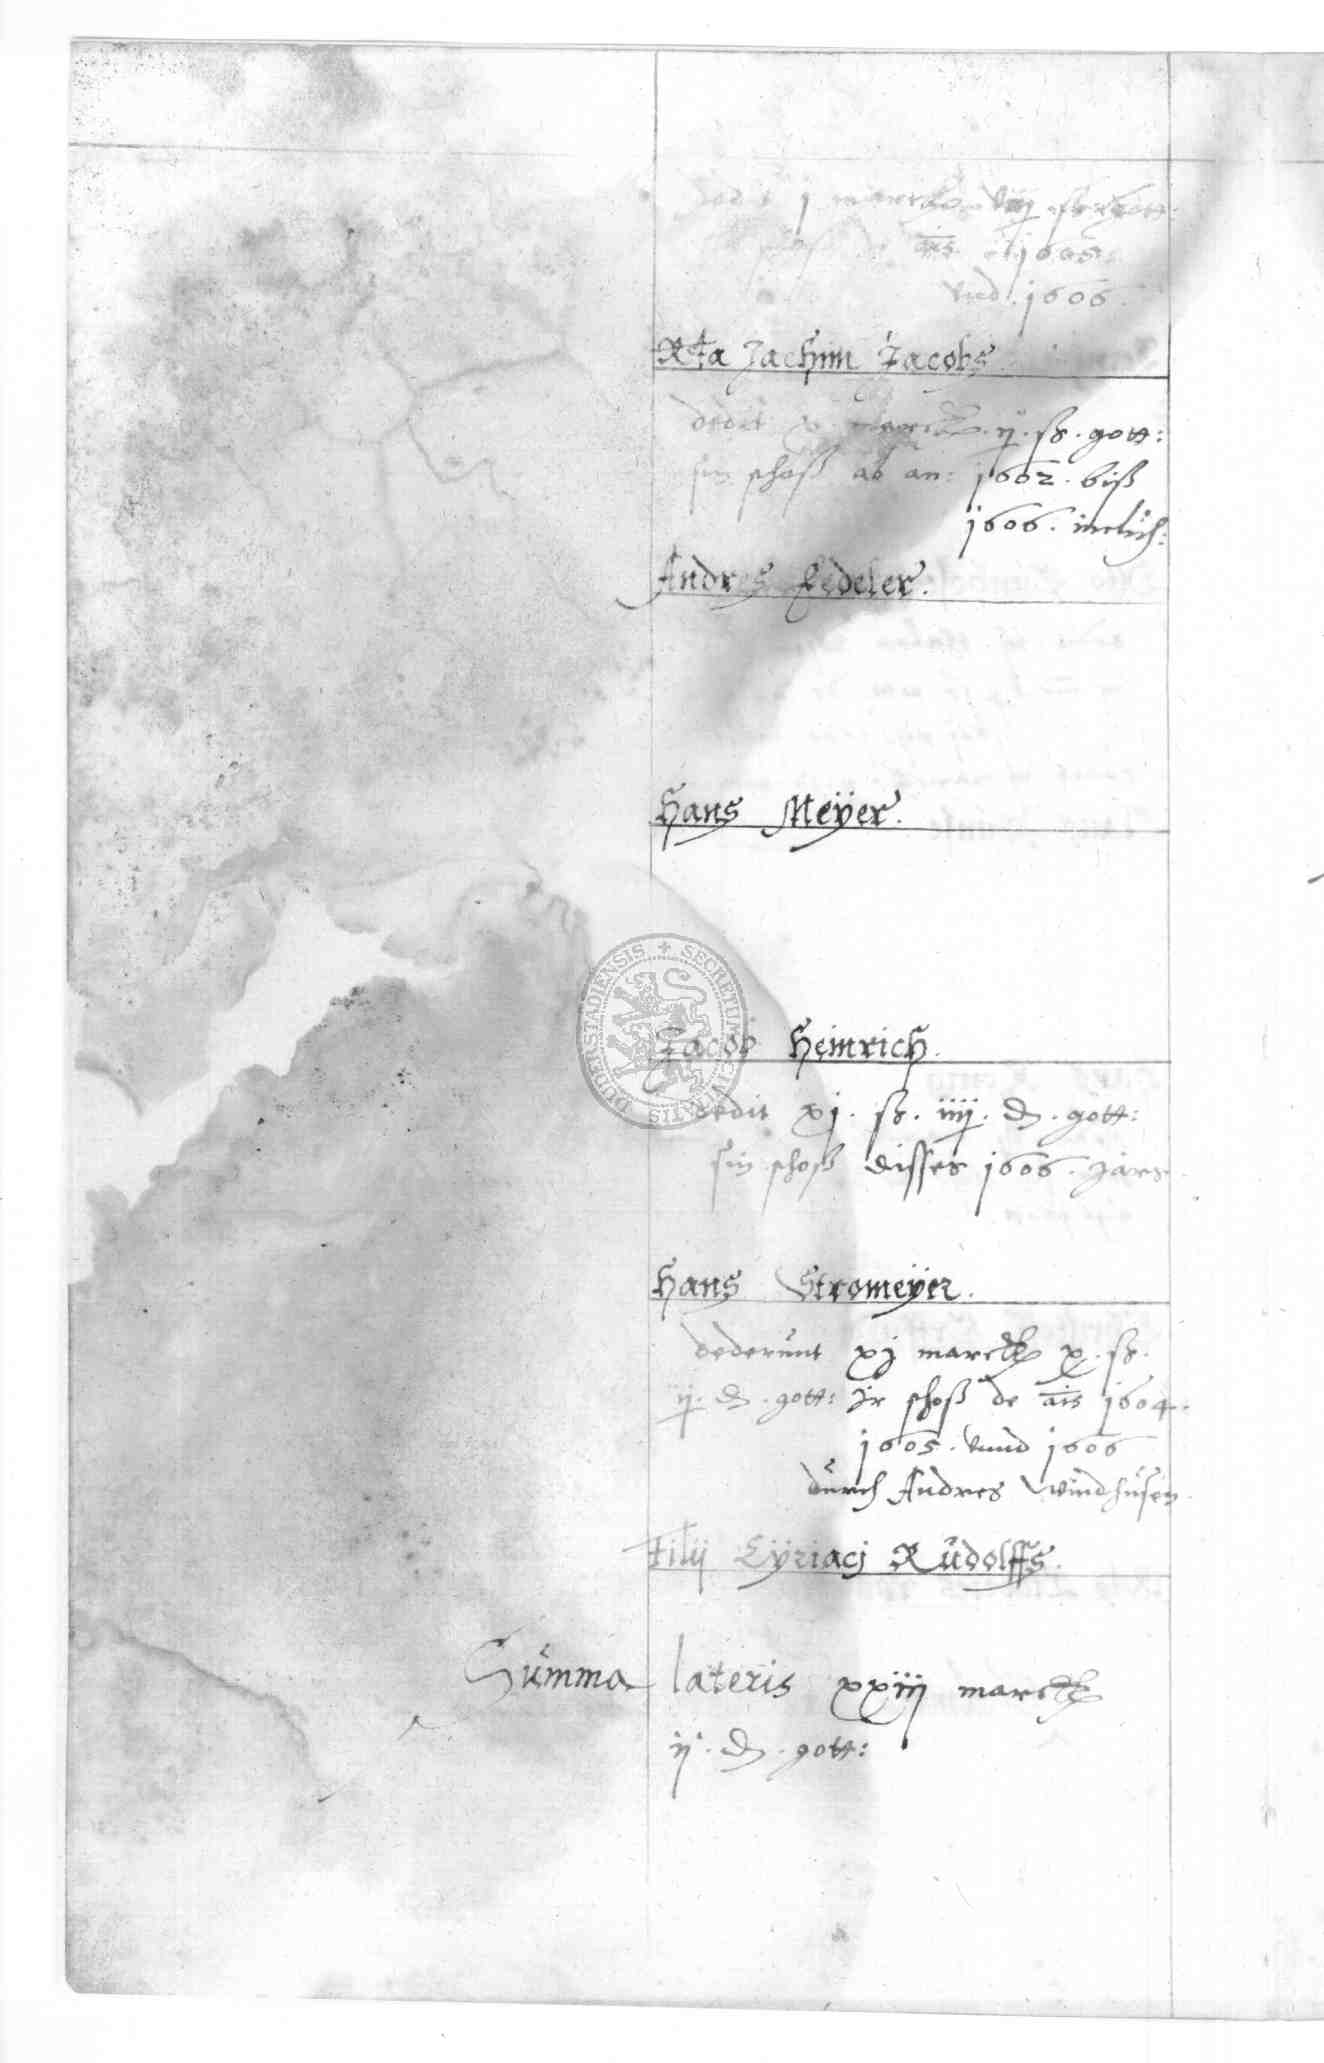 dedit j marck viij ß gott:
schoß de ais 1605.
vnd 1606.
Rta Jachim Jacobs
dedit v marck. ij. ß. gott:
sin schoß ab an: 1602. biß
1606. inclus:
Andres Ledeler.
Hans Meÿer.
Jacob Heinrich.
dedit xj. ß. iiij. d. gott:
sin schoß disses 1606. Jars
Hans Stromeÿer.
dederunt xj marck x. ß.
ij. d. gott: Jr schoß de ais 1604.
1605. vnnd 1606
durch Andres Windhusen.
Filij Cÿriacj Rudolffs.
Summa lateris xxiij marck
ij. d. gott:
SECRETUM CIVITATIS DUDERSTADIENSIS